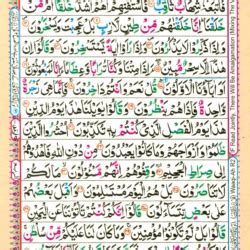 فَاَتْبَعَهٗ شِهَابٌ ثَاقِبٌ فَاسْتَفْتِهِمْ اَهُمْ اَشَدُّ خَلْقًا اَمْ مَّنْ
خَلَقْنَا اِنَّا خَلَقْنٰهُمْ مِّنْ طِيْنٍ لَّازِبٍ بَلْ عَجِبْتَ وَيَسْخَرُوْنَ
وَاِذَا ذُكِّرُوْا لَا يَذْكُرُوْنَ وَاِذَا رَاَوْا اٰيَةً يَّسْتَسْخِرُوْنَ وَقَالُوْٓا اِنْ
هٰذَآ اِلَّا سِحْرٌ مُّبِيْنٌ ءَاِذَا مِتْنَا وَكُنَّا تُرَابًا وَّعِظَامًا ءَاِنَّا لَمَبْعُوْثُوْنَ
اَوَاٰبَآؤُنَا الْاَوَّلُوْنَ قُلْ نَعَمْ وَاَنْتُمْ دَاخِرُوْنَ فَاِنَّمَا هِيَ زَجْرَةٌ
وَّاحِدَةٌ فَاِذَا هُمْ يَنْظُرُوْنَ وَقَالُوْا يٰوَيْلَنَا هٰذَا يَوْمُ الدِّيْنِ
هٰذَا يَوْمُ الْفَصْلِ الَّذِيْ كُنْتُمْ بِهٖ تُكَذِّبُوْنَ اُحْشُرُوا الَّذِيْنَ
ظَلَمُوْا وَاَزْوَاجَهُمْ وَمَا كَانُوْا يَعْبُدُوْنَ مِنْ دُوْنِ اللّٰهِ فَاهْدُوْهُمْ
اِلٰى صِرَاطِ الْجَحِيْمِ وَقِفُوْهُمْ اِنَّهُمْ مَّسْئُوْلُوْنَ مَا لَكُمْ
لَا تَنَاصَرُوْنَ بَلْ هُمُ الْيَوْمَ مُسْتَسْلِمُوْنَ وَاَقْبَلَ بَعْضُهُمْ
عَلٰى بَعْضٍ يَّتَسَآءَلُوْنَ قَالُوْٓا اِنَّكُمْ كُنْتُمْ تَاْتُوْنَنَا عَنِ الْيَمِيْنِ
قَالُوْا بَلْ لَّمْ تَكُوْنُوْا مُؤْمِنِيْنَ وَمَا كَانَ لَنَا عَلَيْكُمْ
Read Jointly, There Will Be Amalgamation (Mixing The